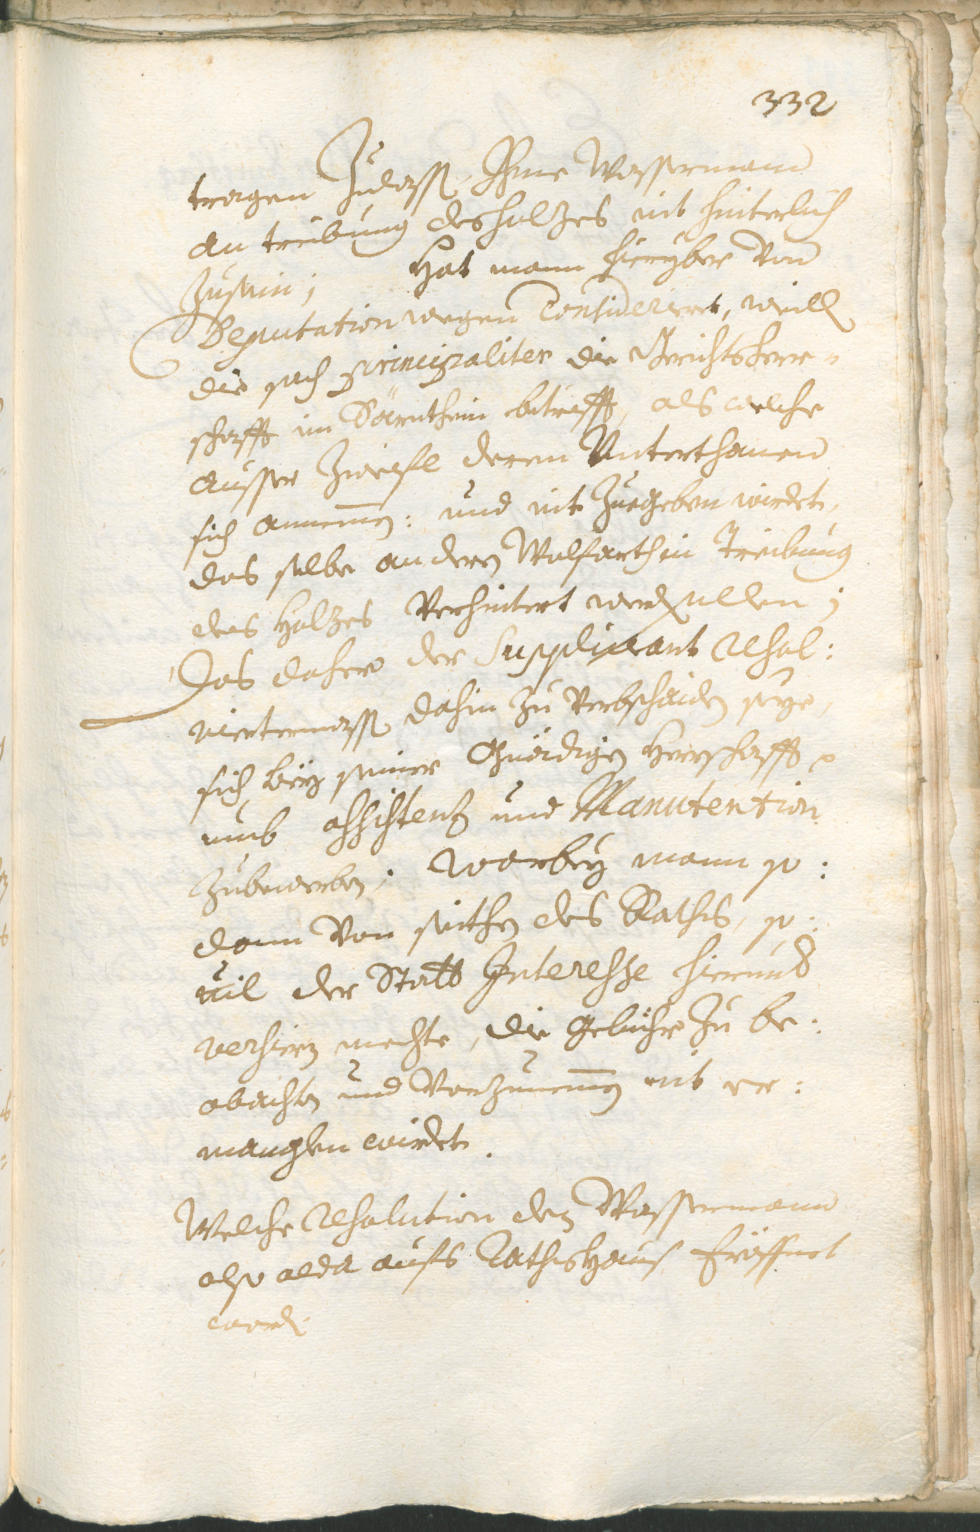 332
tragen zulass, Ihme Wassermann
an treibung des holzes nit hinterlich
zusein; Hat mann hieryber von
Deputation wegen Considerirt, weill
die sach principaliter die Gerichtsherr-
schafft im Särnthein betrifft, als welche
ausser Zweifl deren Unterthanen
sich annemen: und nit zuegeben wirdet,
das selbe an deren Wolfarth in Treibung
des Holzes Verhintert werden sollen;
Das dahero der Supplicant resol:
viertermass dahin zu Verbschaiden seye,
sich bey seiner Gnädigen Herrschafft
umb assistenz und Manutention
zubewerben; Warbey mann so:
dann Von seithen des Raths, so:
uil der Statt Interesse hierunder
versieren mechte, die gebühr zu be:
obachten und Vorzunemen nit er:
manglen wirdet.
Welche resolution dem Wassermann
also alda aufs Rathshaus Eröffnet
worden